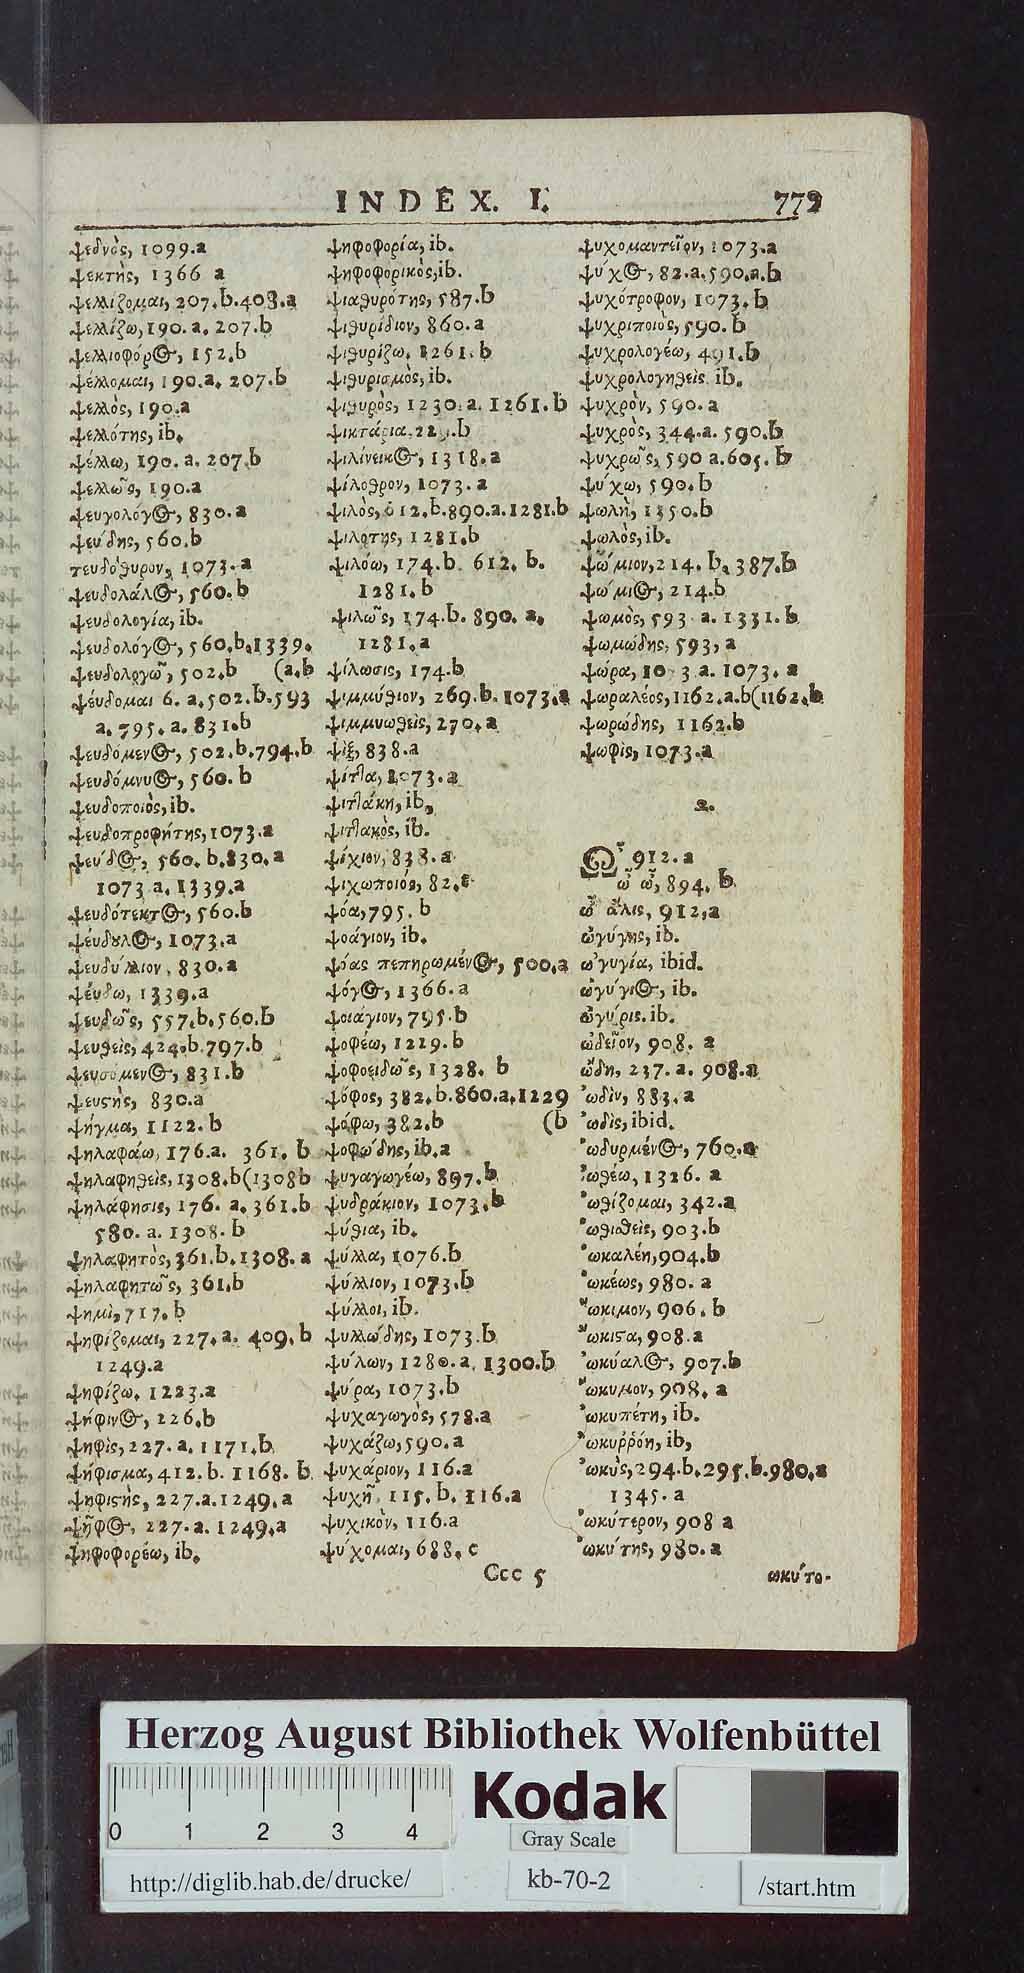 INDEX. I.
779
ψεδνὸς, 1099.a
ψεκτὴς, 1366 a
ψελλίζομαι, 207.b.408.a
ψελλίζω, 190.a. 207.b
ψελλιοφόρ⊙, 152.b
ψέλλομαι, 190.a. 207.b
ψελλὸς, 190.a
ψελλότης, ib.
ψέλλω, 190. a. 207.b
ψελλῶς, 190.a
ψευγολόγ⊙, 830.a
ψεύδης, 560.b
τευδόθυρον, 1073.a
ψευδολάλ⊙, 560.b
ψευδολογία, ib.
ψευδολόγ⊙, 560.b.1339.
ψευδολογῶ, 502.b (a.b
ψέυδομαι 6. a.502.b.593
a. 795. a. 831.b
ψευδόμεν⊙, 502.b.794.b
ψευδόμνυ⊙, 560. b
ψευδοποιὸς, ib.
ψευδοπροφήτης, 1073.a
ψεύδ⊙, 560. b.830.a
1073 a. 1339.a
ψευδότεκτ⊙, 560.b
ψέυδυλ⊙, 1073.a
ψευδύλλιον, 830.a
ψέυδω, 1339.a
ψευδῶς, 557.b.560.b
ψευθεὶς, 424.b.797.b
ψευσόμεν⊙, 831.b
ψευςὴς, 830.a
ψήγμα, 1122. b
ψηλαφάω, 176.a. 361. b
ψηλαφηθεὶς, 1308.b(1308b
ψηλάφησις, 176. a. 361.b
580. a. 1308. b
ψηλαφητὸς, 361.b. 1308. a
ψηλαφητῶς, 361.b
ψημὶ, 717. b
ψηφίζομαι, 227. a. 409. b
1249.a
ψηφίζω. 1223.a
ψήφιν⊙, 226.b
ψηφὶς, 227. a. 1171.b
ψήφισμα, 412. b. 1168. b
ψηφιςὴς, 227.a.1249.a
ψῆφ⊙, 227. a. 1249.a
ψηφοφορέω, ib.
ψηφοφορία, ib.
ψηφοφορικὸς, ib.
ψιαθυρότης, 587.b
ψιθυρίδιον, 860.a
ψιθυρίζω. 1261. b
ψιθυρισμὸς, ib.
ψιθυρὸς, 1230. a. 1261. b
ψικτάρια. .b
ψιλίνεικ⊙, 1318.a
ψίλοθρον, 1073.a
ψιλὸς, 612. b.890.a.1281.b
ψιλότης, 1281.b
ψιλόω, 174.b. 612. b.
1281. b
ψιλῶς, 174.b. 890. a.
1281. a
ψίλωσις, 174.b
ψιμμύθιον, 269.b. 1073.a
ψιμμυωθεὶς, 270.a
ψὶξ, 838.a
ψίττα, 1073.a
ψιττάκη, ib.
ψιττακὸς, ib.
ψίχιον, 838.a
ψιχωποιός, 82.
ψόα, 795. b
ψοάγιον, ib.
ψόας πεπηρωμέν⊙, 500.a
ψόγ⊙, 1366.a
ψοιάγιον, 795.b
ψοφέω, 1229.b
ψοφοειδῶς, 1328. b
ψόφος, 382.b.860.a.1229
ψόφω, 382.b (b
ψοφώδης, ib.a
ψυγαγωγέω, 897.b
ψυδράκιον, 1073.b
ψύθια, ib.
ψύλλα, 1076.b
ψύλλιον, 1073.b
ψύλλοι, ib.
ψυλλώδης, 1073.b
ψύλων, 1280.a. 1300.b
ψύρα, 1073.b
ψυχαγωγὸς, 578.a
ψυχάζω, 590.a
ψυχάριον, 116.a
ψυχῆ, 115. b. 116.a
ψυχικὸν, 116.a
ψύχομαι, 688. c
ψυχομαντεῖον, 1073.a
ψύχ⊙, 82.a.590.a.b
ψυχότροφον, 1073. b
ψυχριποιὸς, 590. b
ψυχρολογέω, 491.b
ψυχρολογηθεὶς. ib.
ψυχρὸν, 590. a
ψυχρὸς, 344.a. 590.b
ψυχρῶς, 590 a.605. b
ψύχω, 590.b
ψωλὴ, 1350.b
ψωλὸς, ib.
ψώμιον, 214. b. 387.b
ψώμι⊙, 214.b
ψωμὸς, 593. a. 1331. b
ψωμώδης, 593, a
ψώρα, a. 1073. a
ψωραλέος, 1162.a.b(1162.b
ψωρώδης, 1162.b
ψωφὶς, 1073.a
Ω.
Ω῏ 912.a
ὦ ὦ, 894. b
ὦ ἅλις, 912, a
ὠγύγης, ib.
ὠγυγία, ibid.
ὠγύγι⊙, ib.
ὠγύρις. ib.
ὠδεῖον, 908. a
ὤδη, 237. a. 908.a
ὠδὶν, 883. a
ὠδὶς, ibid.
ὠδυρμέν⊙, 760.a
ὠθέω, 1326. a
ὠθίζομαι, 342.a
ὠθιαθεὶς, 903.b
ὠκαλέη, 904.b
ὠκέως, 980. a
ὤκιμον, 906. b
ὤκιςα, 908.a
ὠκύαλ⊙, 907.b
ὤκυμον, 908. a
ὠκυπέτη, ib.
ὠκυῤῥόη, ib,
ὠκὺς, 294.b.295.b.980.a
1345.a
ὠκύτερον, 908 a
ὠκύτης, 980. a
Ccc 5
ωκύτο-
Herzog August Bibliothek Wolfenbüttel
0 1 2 3 4
Kodak
Gray Scale
http://diglib.hab.de/drucke/
kb-70-2
/start.htm